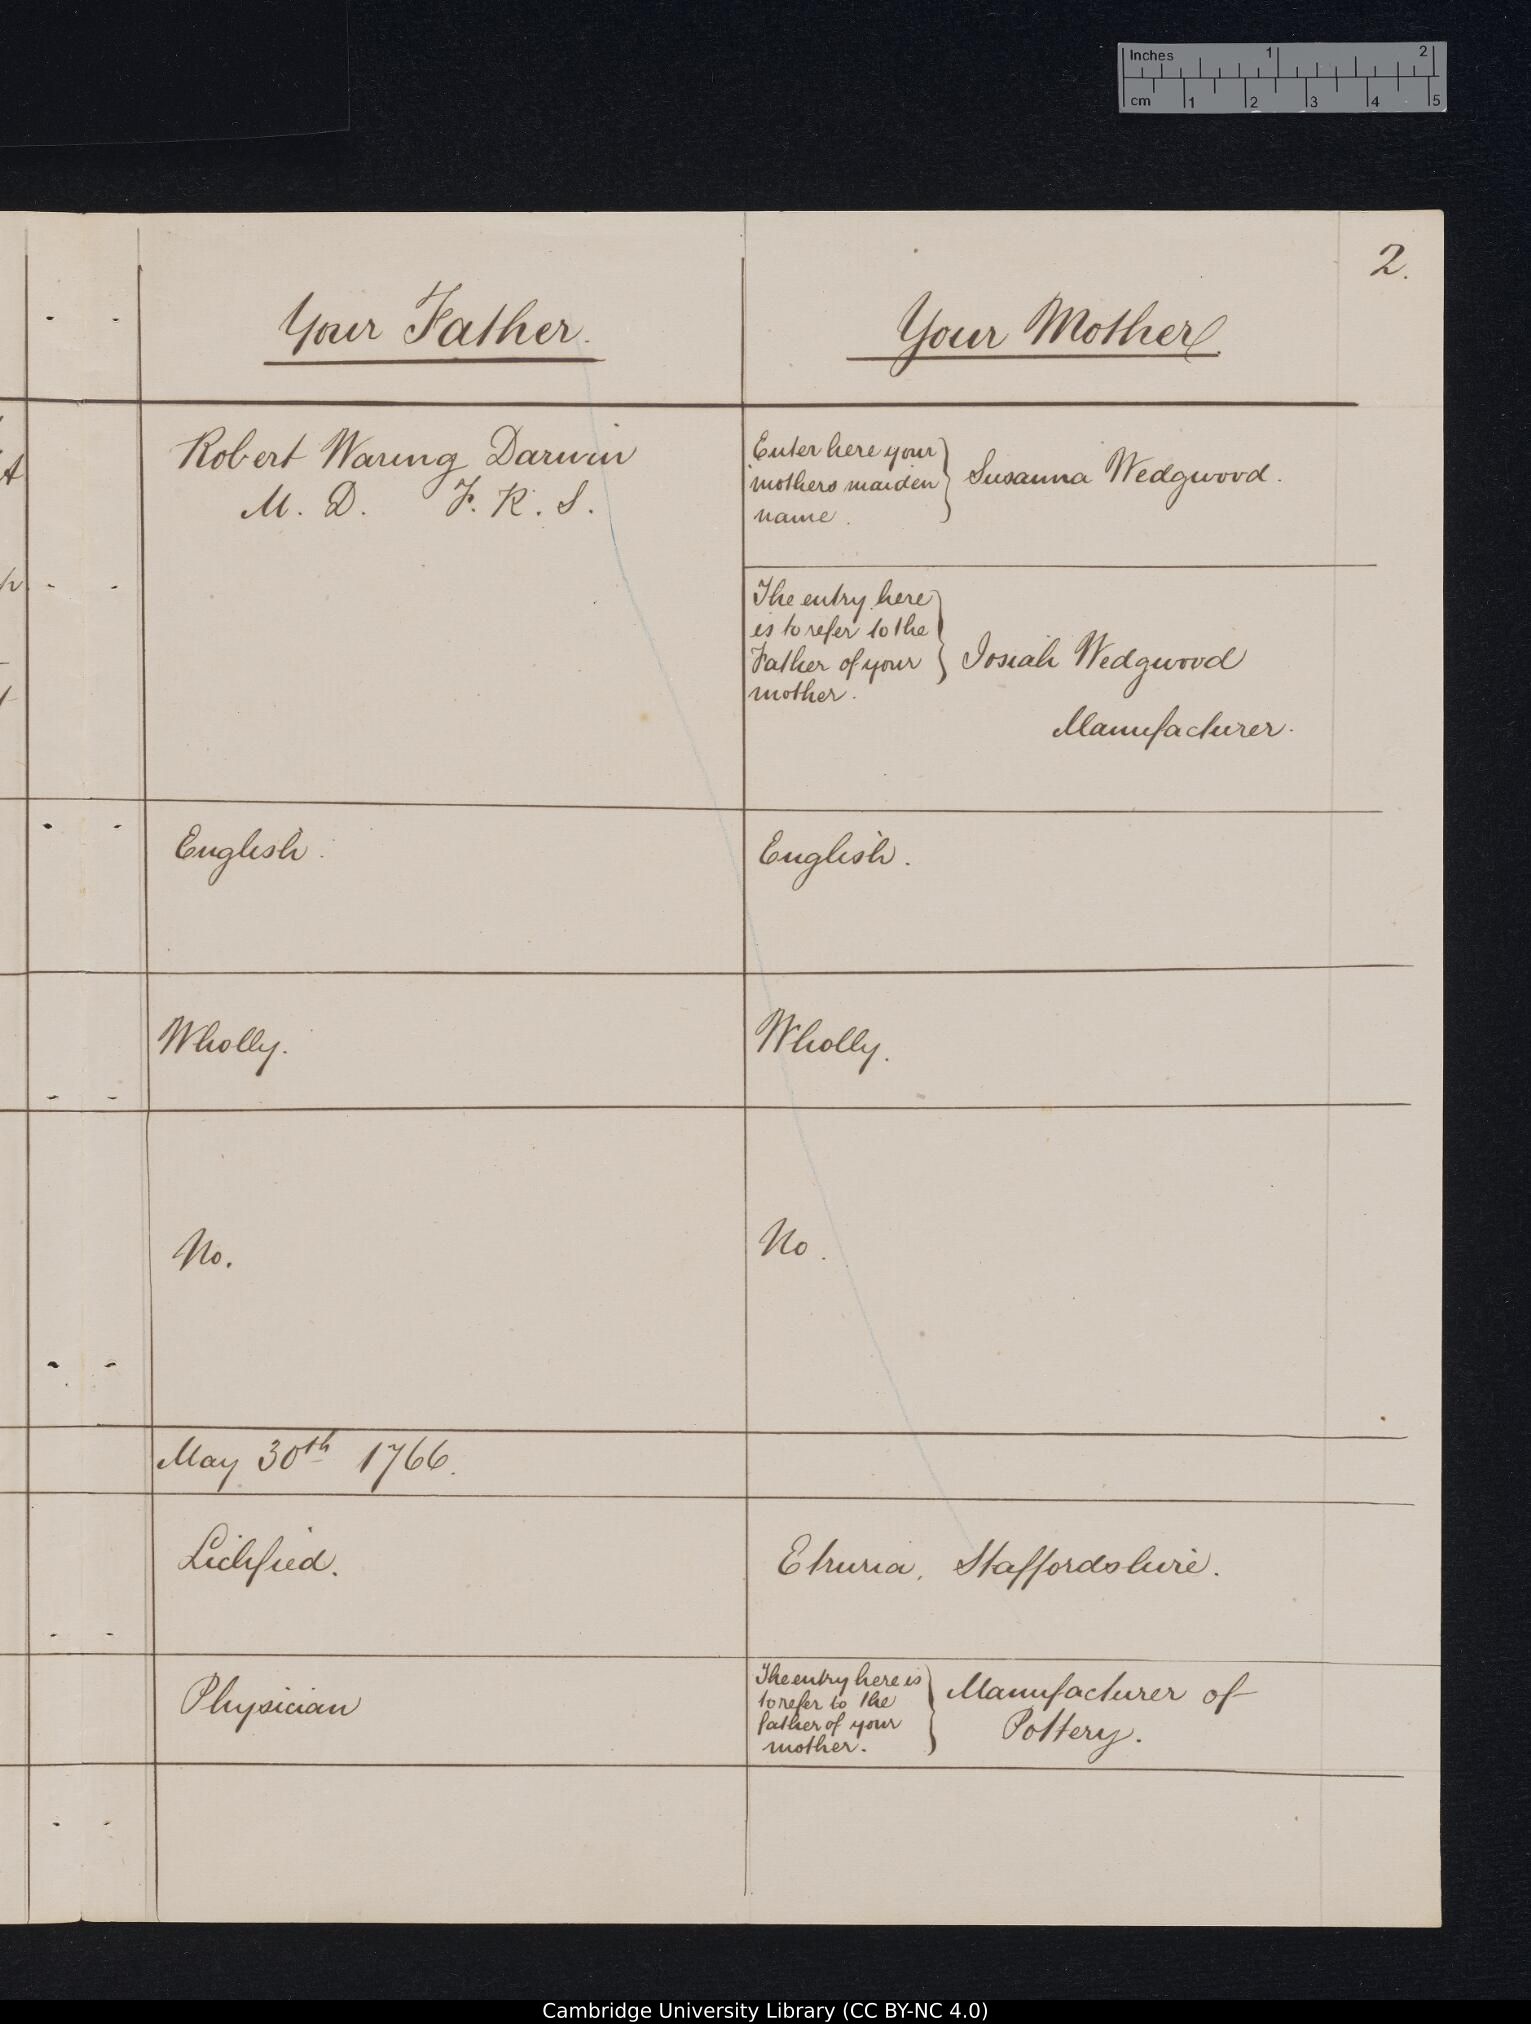 Inches 1 2
cm 1 2 3 4 5
2.
Your Father.
Your Mother
Robert Waring Darwin
M. D. F. R. S.
Enter here your
mothers maiden
name.
Susanna Wedgwood.
The entry here
is to refer to the
Father of your
mother.
Josiah Wedgwood
Manufacturer.
English.
English.
Wholly.
Wholly.
No.
No.
May 30th 1766.
Lichfied.
Etruria, Staffordshire.
Physician
The entry here is
to refer to the
father of your
mother.
Manufacturer of
Pottery.
Cambridge University Library (CC BY-NC 4.0)